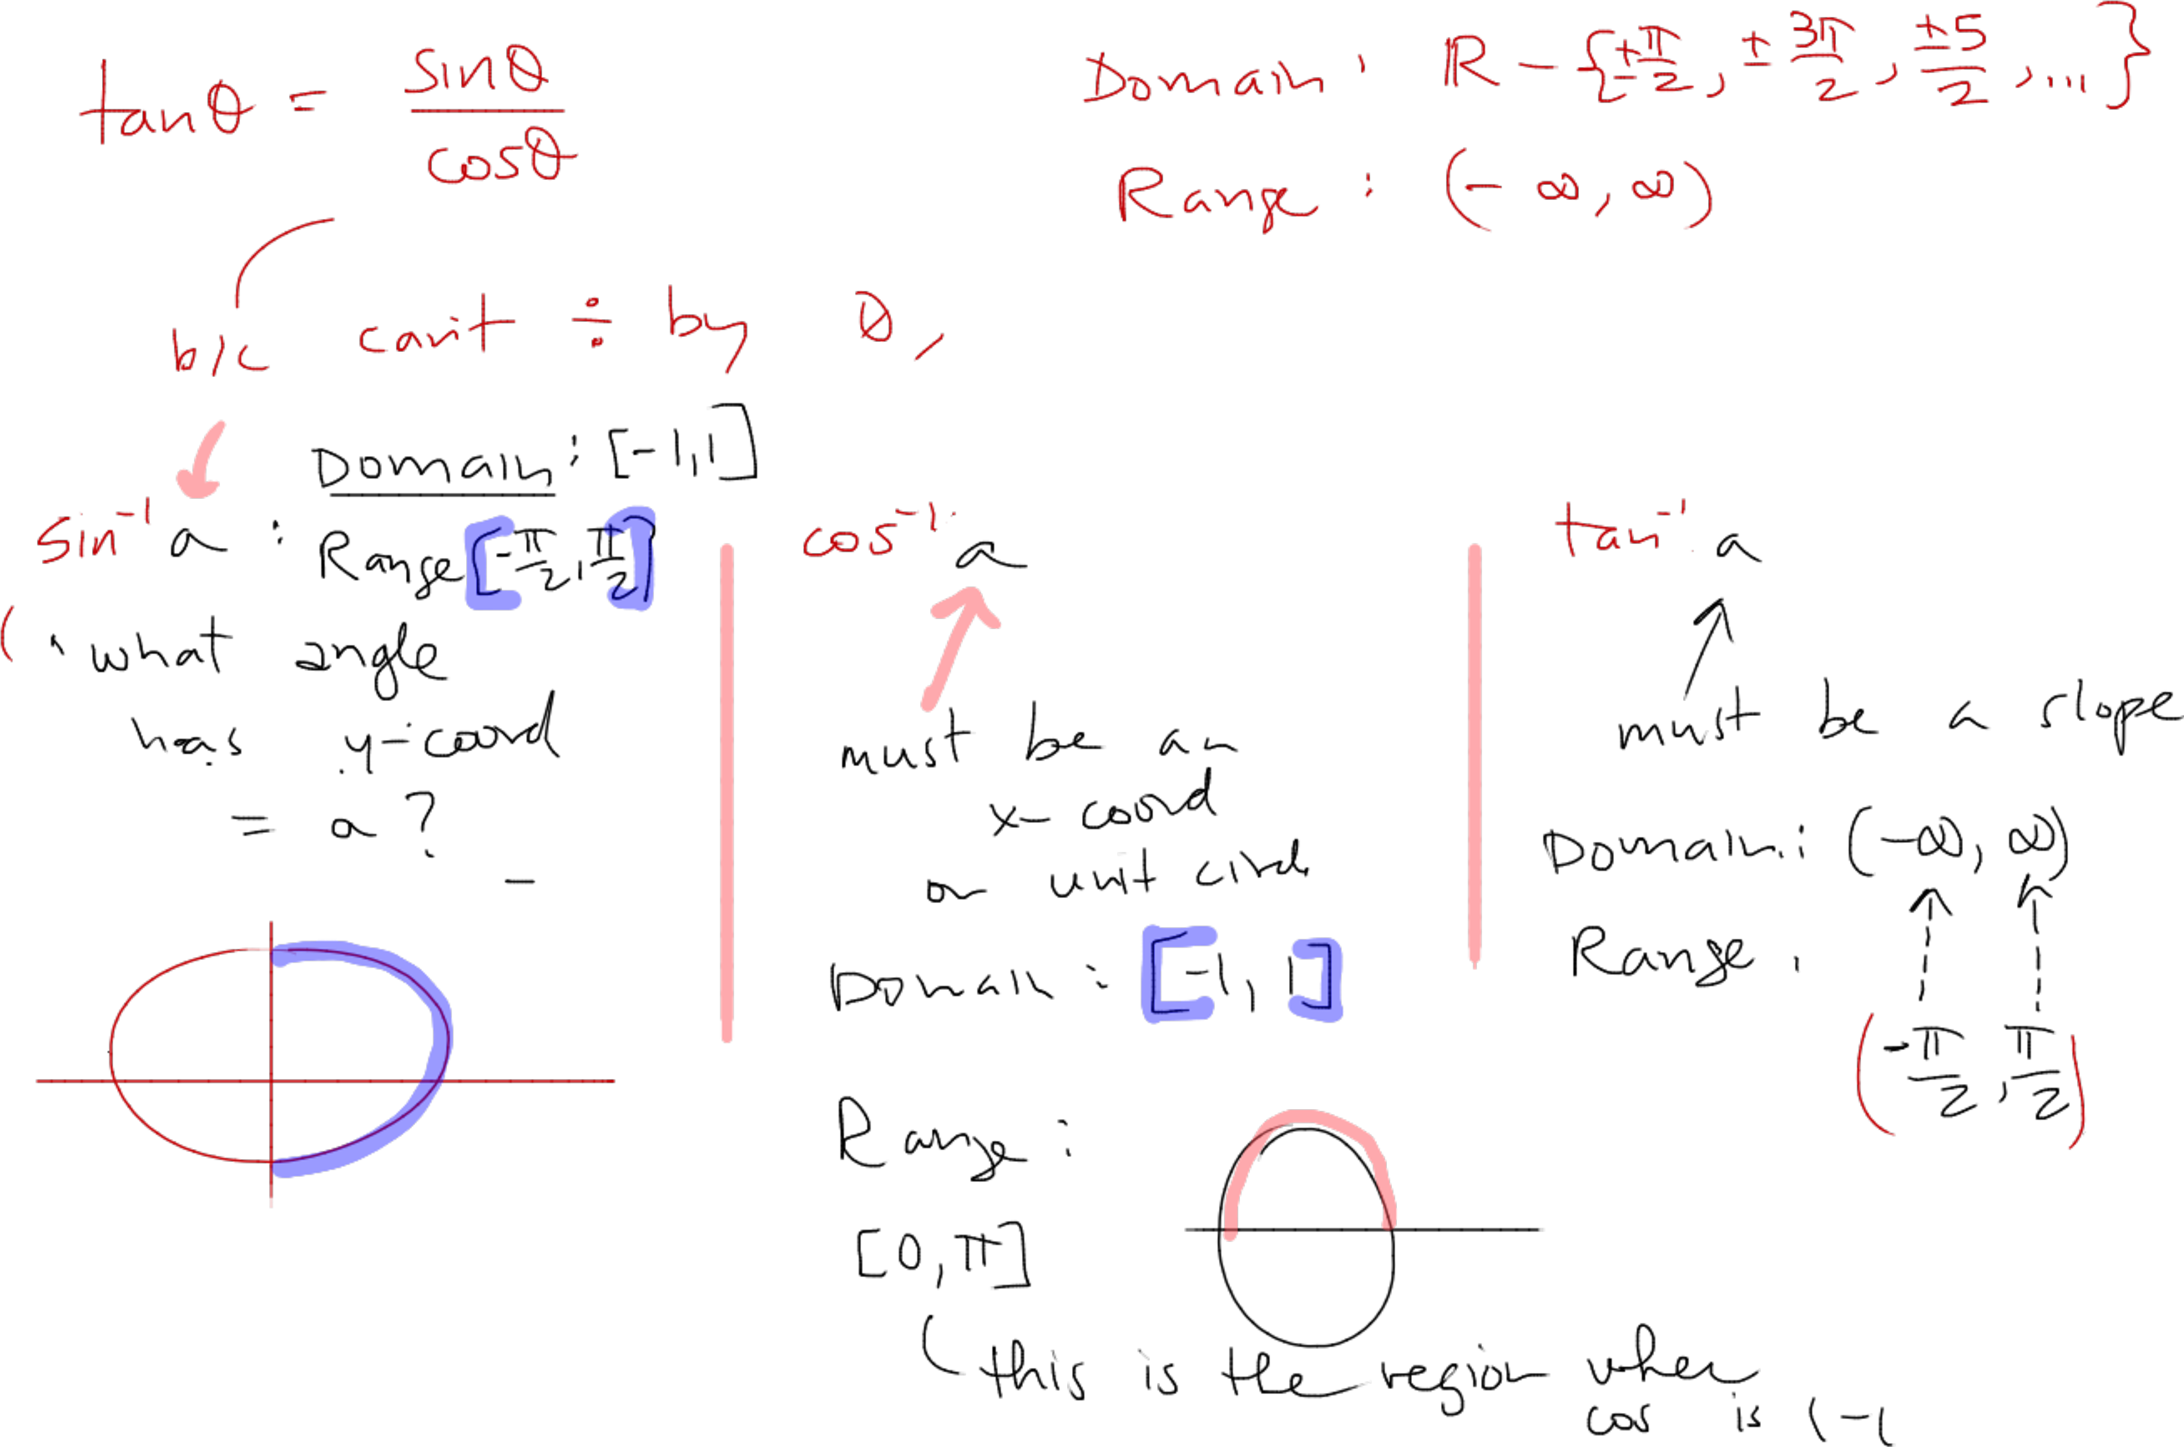 tanθ = sinθ / cosθ
Domain: ℝ - {±π/2, ±3π/2, ±5/2, ...}
Range: (-∞, ∞)
b/c can't ÷ by 0,
Domain: [-1,1]
sin⁻¹ a : Range [-π/2, π/2]
what angle
has y-coord
= a?
cos⁻¹ a
must be an
x-coord
on unit circle
Domain: [-1, 1]
Range:
[0, π]
this is the region when
cos is 1-1
tan⁻¹ a
must be a slope
Domain: (-∞, ∞)
Range:
(-π/2, π/2)